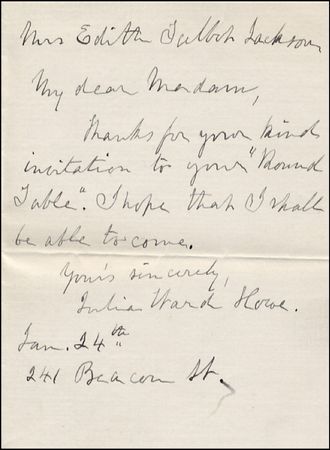 Mrs Edith Talbot Jackson,
My dear Madam,
Thanks for your kind
invitation to your "Round
Table". I hope that I shall
be able to come.
Your's sincerely,
Julia Ward Howe.
Jan. 24th
241 Beacon St.